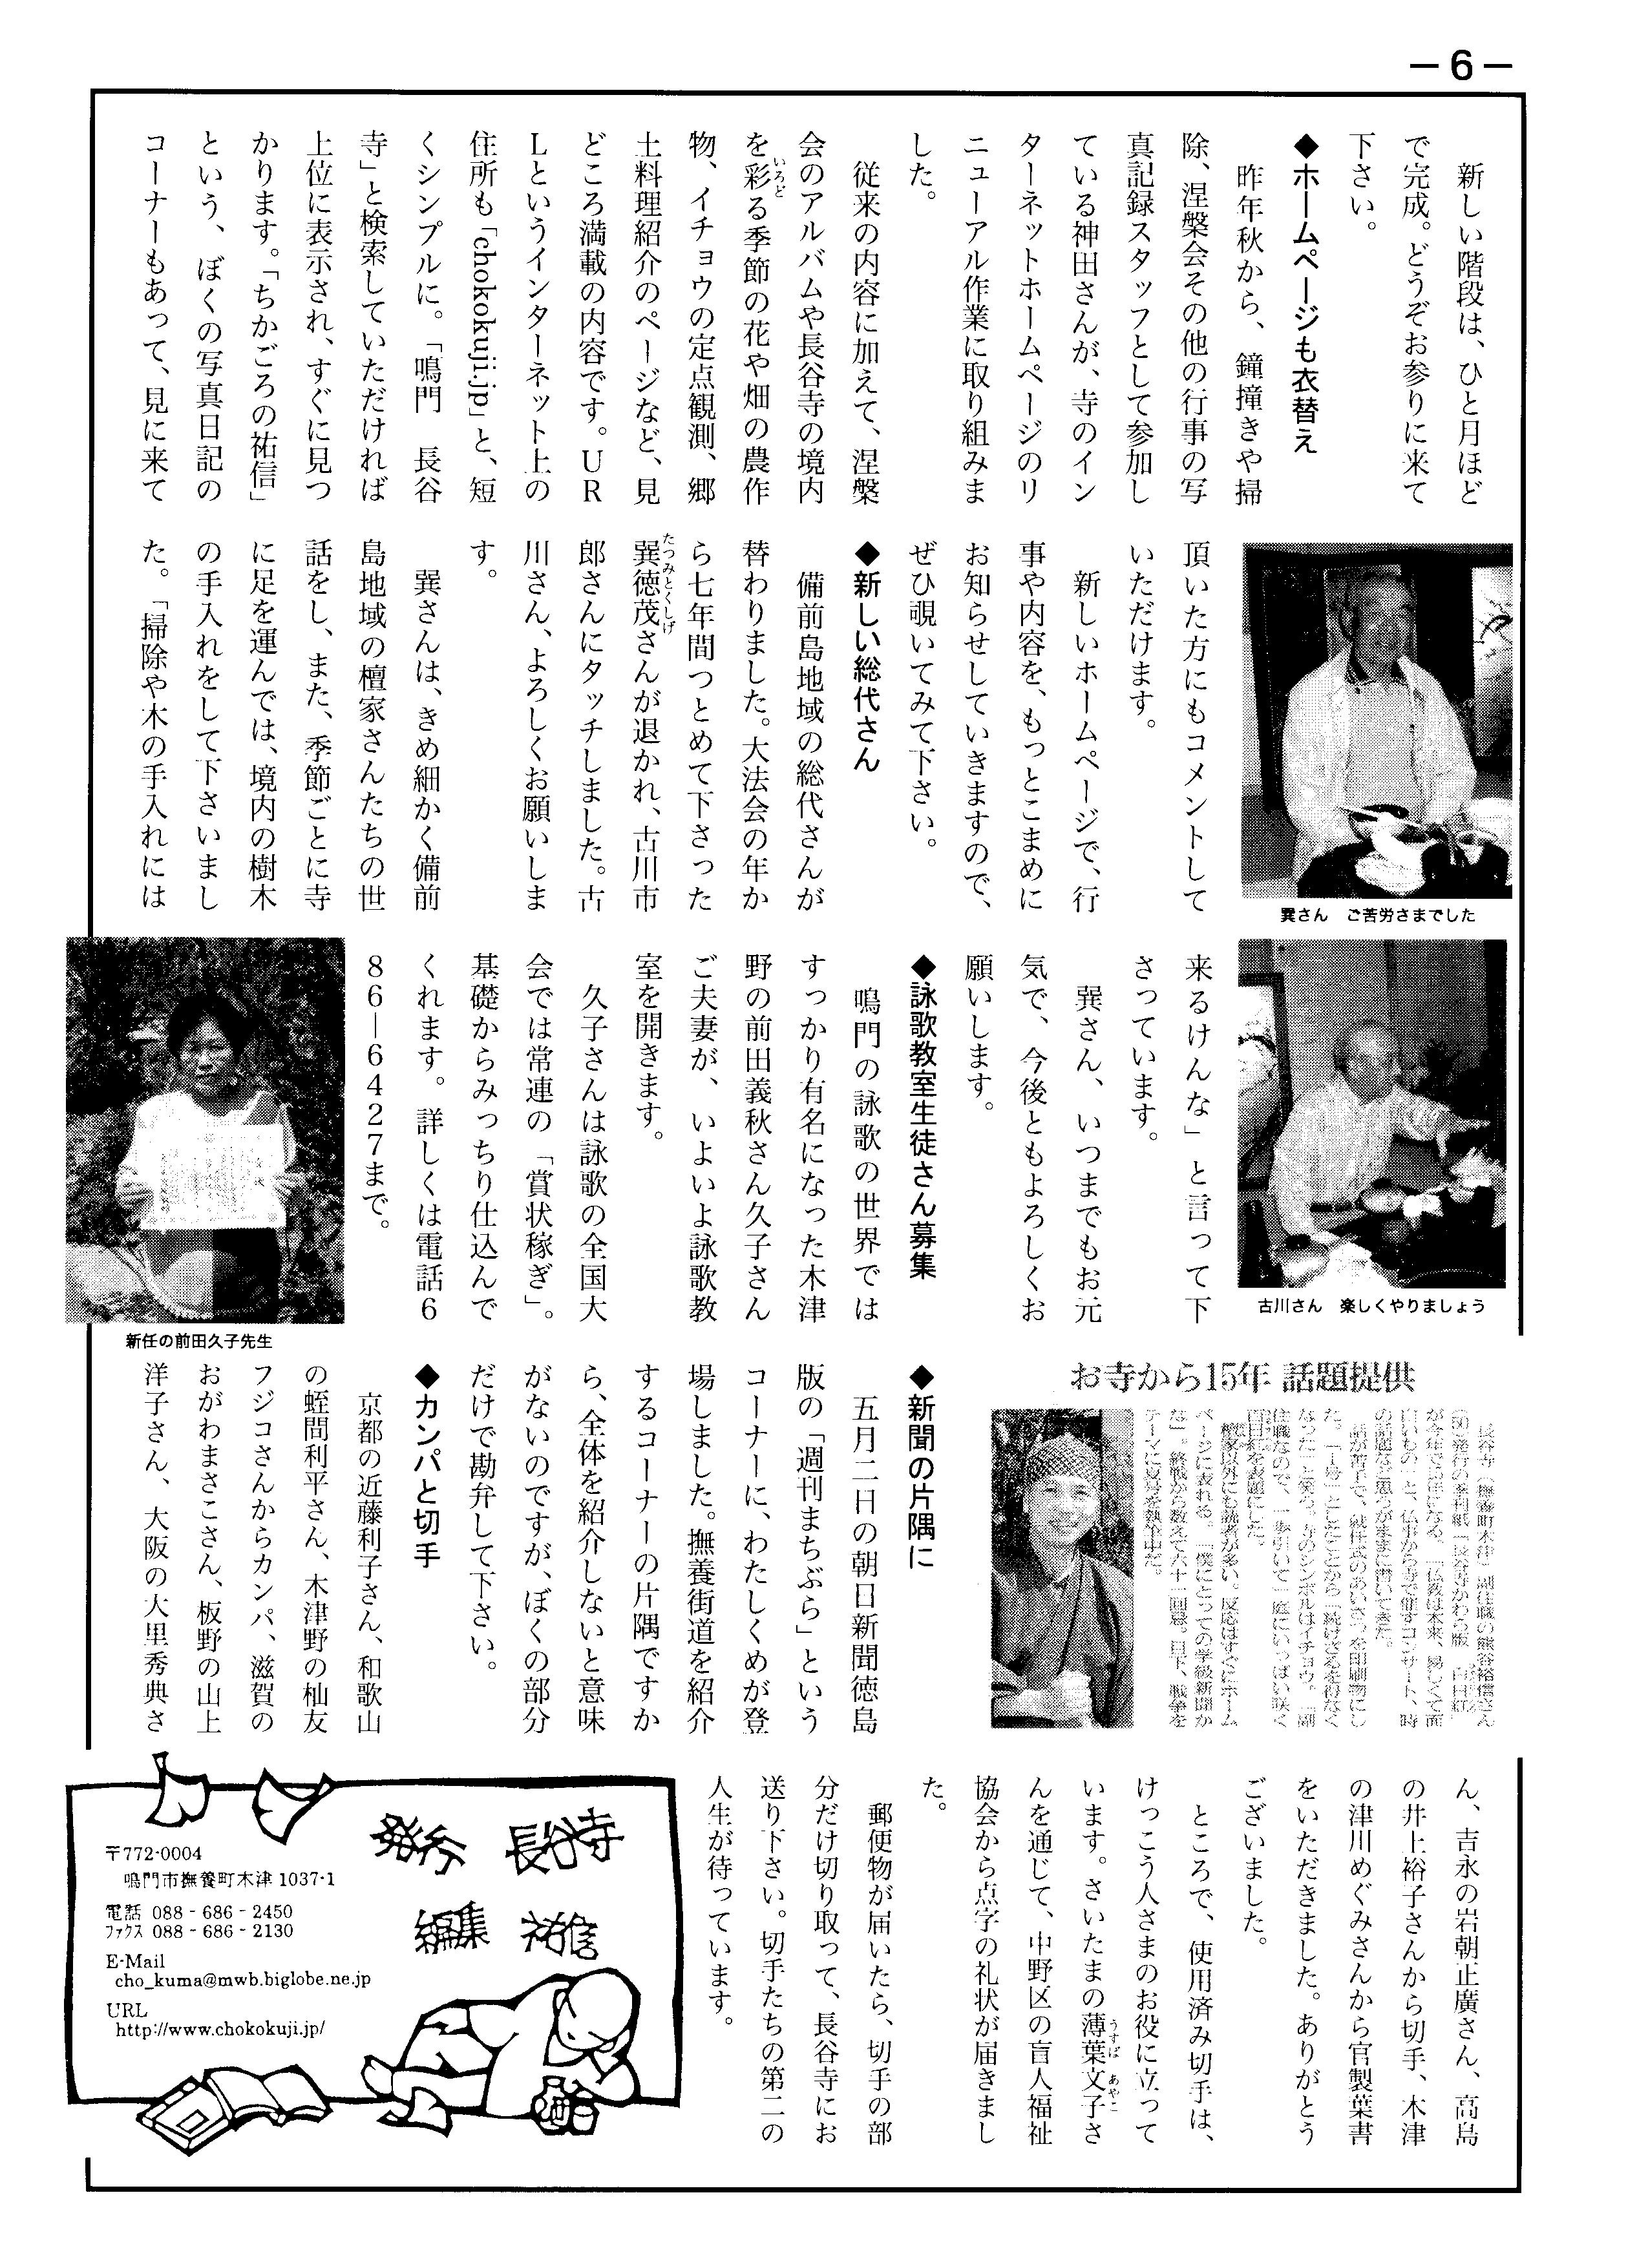 －6－
　新しい階段は、ひと月ほど
で完成。どうぞお参りに来て
下さい。
◆ホームページも衣替え
　昨年秋から、鐘撞きや掃
除、涅槃会その他の行事の写
真記録スタッフとして参加し
ている神田さんが、寺のイン
ターネットホームページのリ
ニューアル作業に取り組みま
した。
　従来の内容に加えて、涅槃
会のアルバムや長谷寺の境内
を彩いろどる季節の花や畑の農作
物、イチョウの定点観測、郷
土料理紹介のページなど、見
どころ満載の内容です。UR
Lというインターネット上の
住所も「chokokuji.jp」と、短
くシンプルに。「鳴門　長谷
寺」と検索していただければ
上位に表示され、すぐに見つ
かります。「ちかごろの祐信」
という、ぼくの写真日記の
コーナーもあって、見に来て
頂いた方にもコメントして
いただけます。
　新しいホームページで、行
事や内容を、もっとこまめに
お知らせしていきますので、
ぜひ覗いてみて下さい。
◆新しい総代さん
　備前島地域の総代さんが
替わりました。大法会の年か
ら七年間つとめて下さった
巽徳茂たつみとくしげさんが退かれ、古川市
郎さんにタッチしました。古
川さん、よろしくお願いしま
す。
　巽さんは、きめ細かく備前
島地域の檀家さんたちの世
話をし、また、季節ごとに寺
に足を運んでは、境内の樹木
の手入れをして下さいまし
た。「掃除や木の手入れには
巽さん　ご苦労さまでした
来るけんな」と言って下
さっています。
　巽さん、いつまでもお元
気で、今後ともよろしくお
願いします。
◆詠歌教室生徒さん募集
　鳴門の詠歌の世界では
すっかり有名になった木津
野の前田義秋さん久子さん
ご夫妻が、いよいよ詠歌教
室を開きます。
　久子さんは詠歌の全国大
会では常連の「賞状稼ぎ」。
基礎からみっちり仕込んで
くれます。詳しくは電話6
86－6427まで。
古川さん　楽しくやりましょう
新任の前田久子先生
お寺から15年 話題提供
長谷寺（撫養町木津）副住職の熊谷裕信さん
（50）発行の季刊紙「長谷寺かわら版　百日紅」
が今年で15年になる。「仏教は本来、易しくて面
白いもの」と、仏事から寺で催すコンサート、時
の話題など思うがままに書いてきた。
　話が苦手で、就任式のあいさつを印刷物にし
た。「1号」としたことから「続けざるを得なく
なった」と笑う。寺のシンボルはイチョウ。「副
住職なので、一歩引いて」庭にいっぱい咲く
百日紅を表題にした。
　檀家以外にも読者が多い。反応はすぐにホーム
ページに表れる。「僕にとっての学級新聞か
な」。終戦から数えて六十一回忌。目下、戦争を
テーマに夏号を執筆中だ。
◆新聞の片隅に
　五月二日の朝日新聞徳島
版の「週刊まちぶら」という
コーナーに、わたしくめが登
場しました。撫養街道を紹介
するコーナーの片隅ですか
ら、全体を紹介しないと意味
がないのですが、ぼくの部分
だけで勘弁して下さい。
◆カンパと切手
　京都の近藤利子さん、和歌山
の蛭間利平さん、木津野の杣友
フジコさんからカンパ、滋賀の
おがわまさこさん、板野の山上
洋子さん、大阪の大里秀典さ
ん、吉永の岩朝止廣さん、高島
の井上裕子さんから切手、木津
の津川めぐみさんから官製葉書
をいただきました。ありがとう
ございました。
　ところで、使用済み切手は、
けっこう人さまのお役に立って
います。さいたまの薄葉文子うすば あやこさ
んを通じて、中野区の盲人福祉
協会から点字の礼状が届きまし
た。
　郵便物が届いたら、切手の部
分だけ切り取って、長谷寺にお
送り下さい。切手たちの第二の
人生が待っています。
発行 長谷寺
編集 祐信
〒772-0004
鳴門市撫養町木津 1037-1
電話 088 - 686 - 2450
ファクス 088 - 686 - 2130
E-Mail
cho_kuma@mwb.biglobe.ne.jp
URL
http://www.chokokuji.jp/